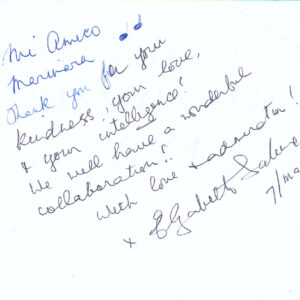 Mi Amico
Marinara !!
Thank you for your
kindness, your love,
& your intelligence!
We will have a wonderful
collaboration!
With love & admiration!
x Elizabeth
7/Ma